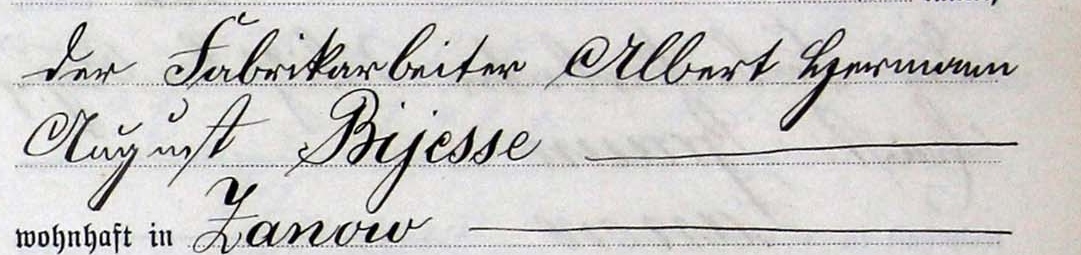 der Fabrikarbeiter Albert Hermann
August Bijesse
wohnhaft in Zanow